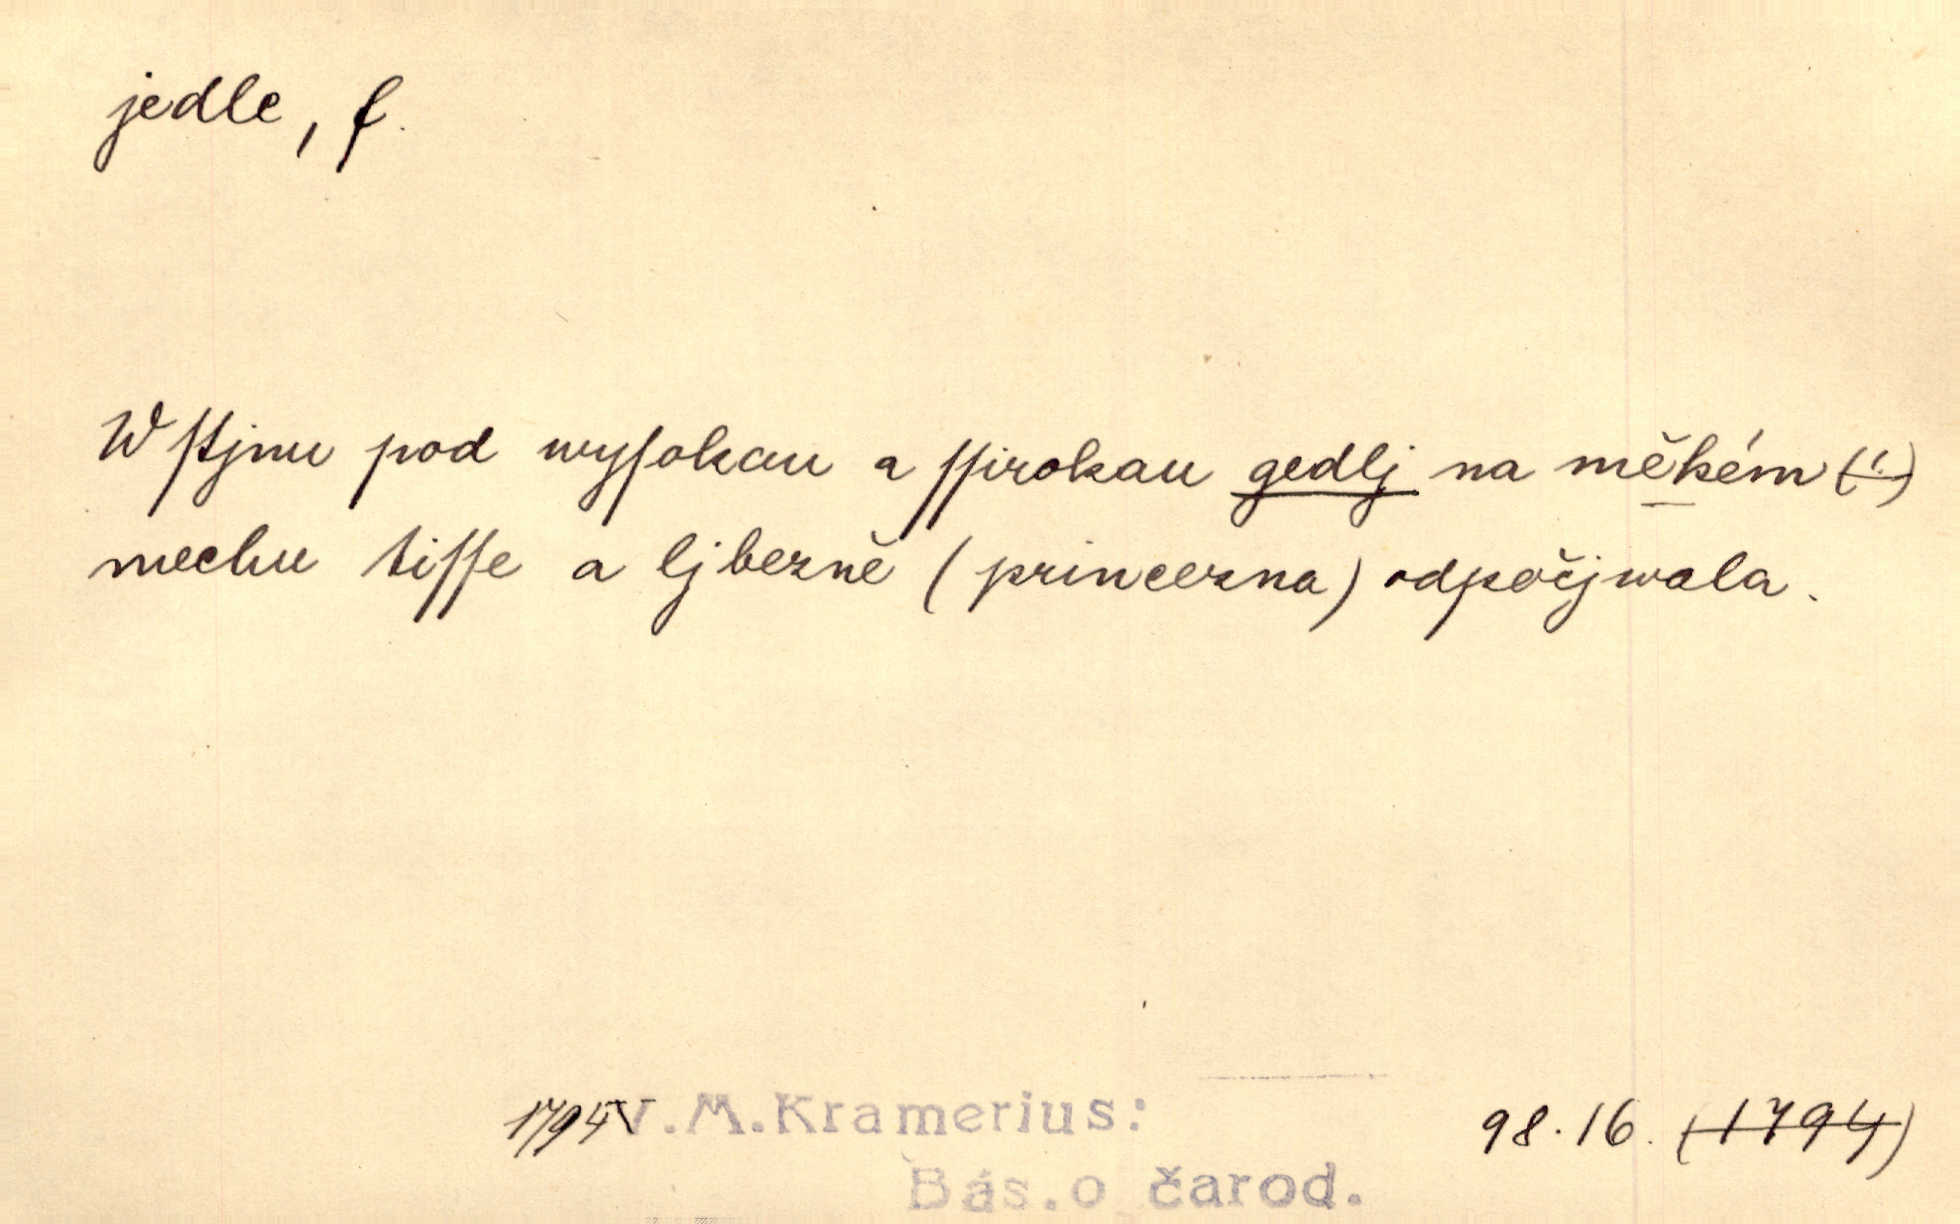 jedle, f.
W stjnu pod wysokau a ssirokau gedlj na měkém (!)
mechu tisse a ljbezně (princezna) odpočjwala.
1794 V.M.Kramerius: 98.16. (1794)
Bás.o čarod.